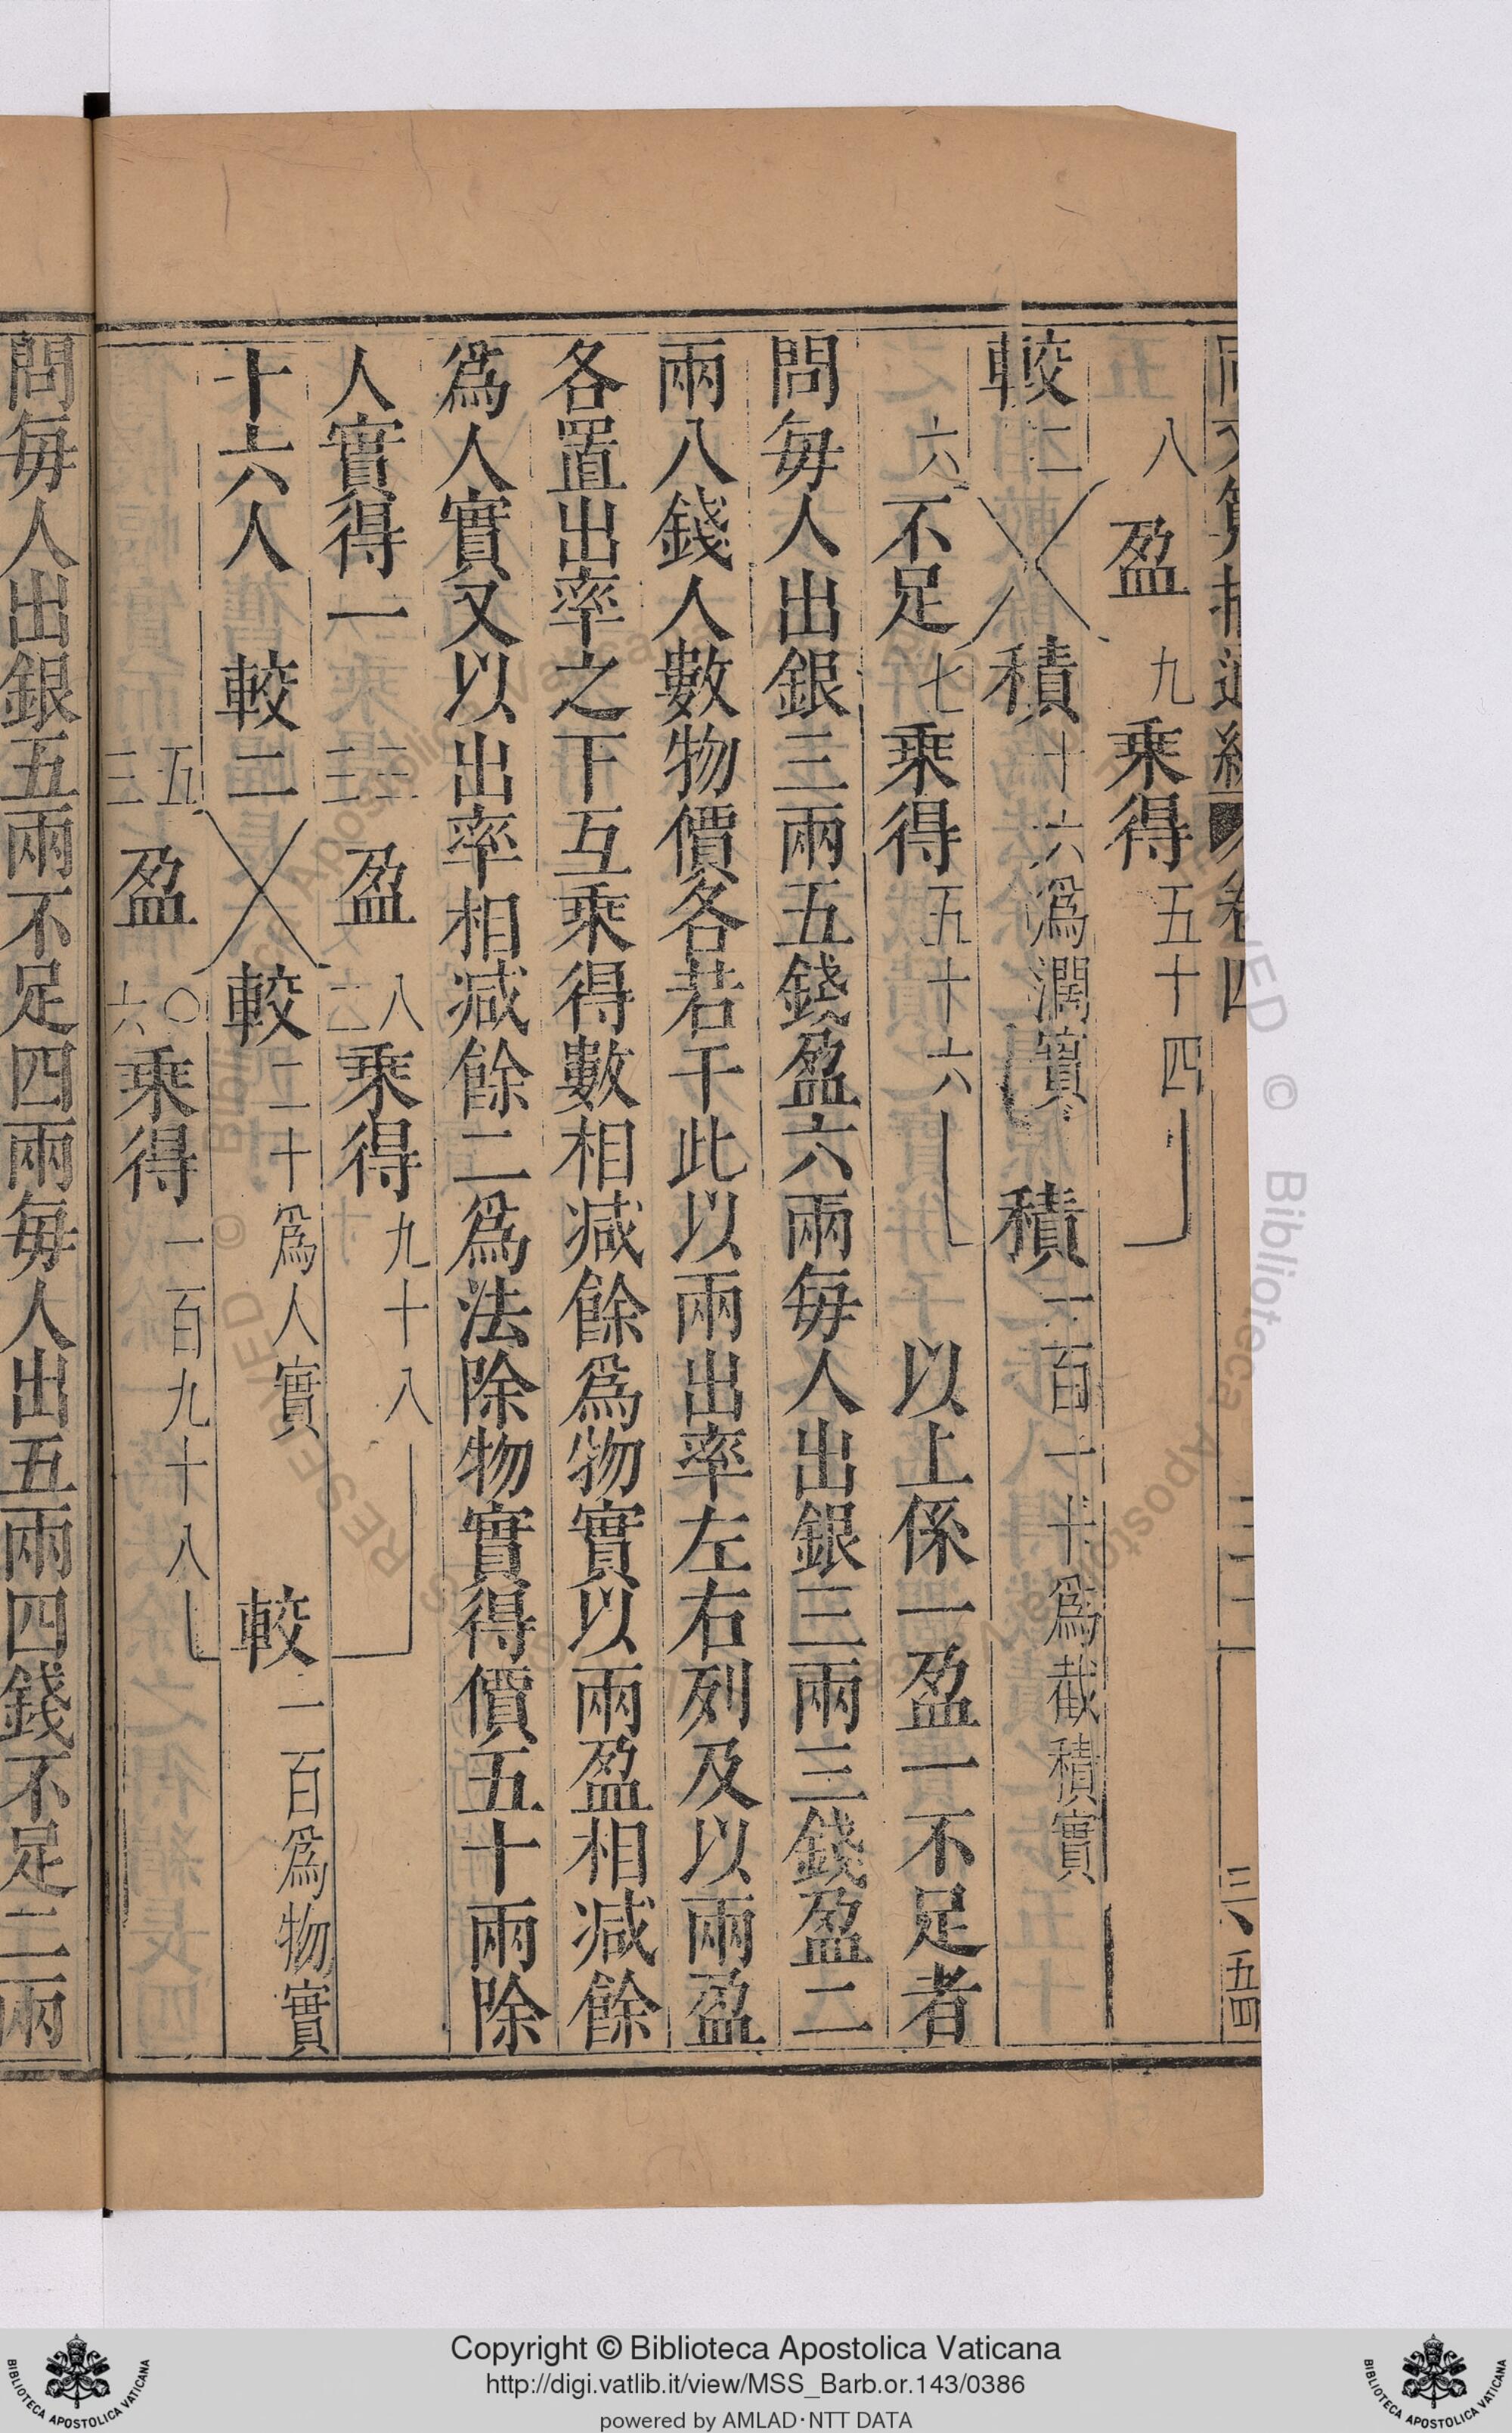 八 盈 九 乘得 五十四
較 二 積 十六爲濶實 積 一百一十爲截積實
六 不足 七 乘得 五十六 以上係一盈一不足者
問每人出銀三兩五錢盈六兩每人出銀三兩三錢盈二
兩八錢人數物價各若干此以兩出率左右列及以兩盈
各置出率之下互乘得數相减餘爲物實以兩盈相减餘
爲人實又以出率相减餘二爲法除物實得價五十兩除
人實得一 三三 盈 八二 乘得 九十八
十六人 較 二 較 二十爲人實 較 一百爲物實
五三 盈 〇六 乘得 一百九十八
問每人出銀五兩不足四兩每人出五兩四錢不足二兩
Copyright © Biblioteca Apostolica Vaticana
http://digi.vatlib.it/view/MSS_Barb.or.143/0386
powered by AMLAD·NTT DATA
BIBLIOTECA APOSTOLICA VATICANA
BIBLIOTECA APOSTOLICA VATICANA